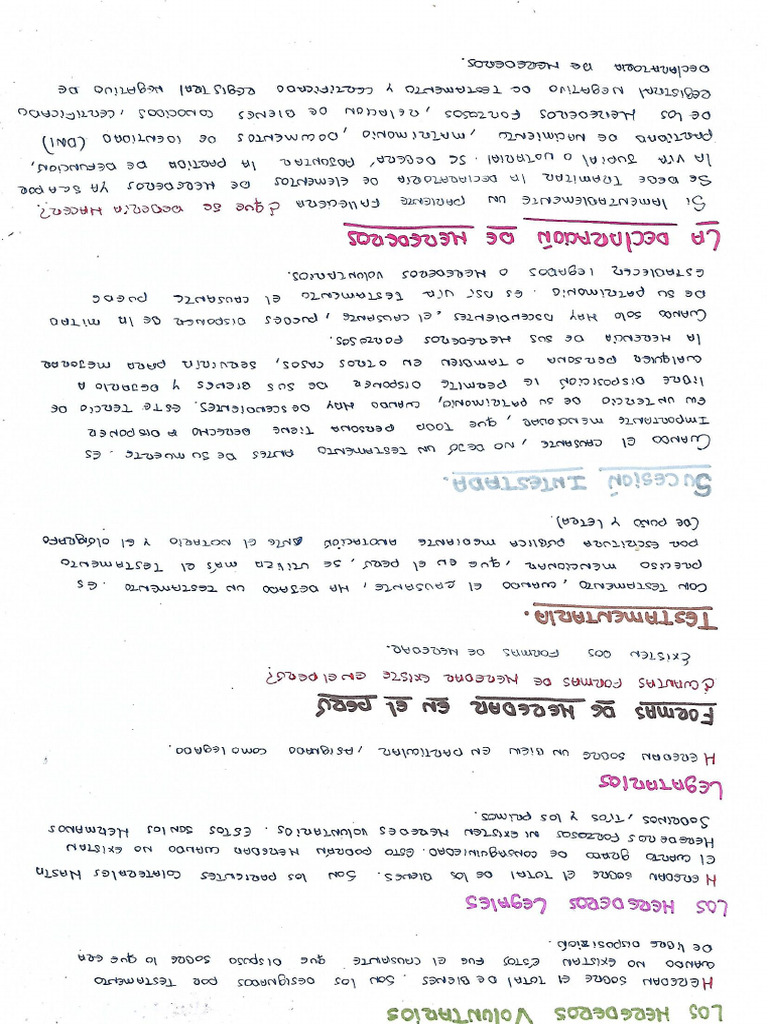 LOS HEREDEROS VOLUNTARIOS
HEREDAN SOBRE EL TOTAL DE BIENES. SON LOS DESIGNADOS POR TESTAMENTO
CUANDO NO EXISTAN ESTOS FUE EL CAUSANTE QUE DISPUSO SOBRE LO QUE ERA
DE LIBRE DISPOSICIÓN.
LOS HEREDEROS LEGALES
HEREDAN SOBRE EL TOTAL DE LOS BIENES. SON LOS PARIENTES COLATERALES HASTA
EL CUARTO GRADO DE CONSAGUINIEDAD. ESTO PODRÁN HEREDAR CUANDO NO EXISTAN
HEREDEROS FORZOSOS NI EXISTEN HEREDES VOLUNTARIOS. ESTOS SON LOS HERMANOS
SOBRINOS, TIOS Y LOS PRIMOS.
LEGATARIOS
HEREDAN SOBRE UN BIEN EN PARTICULAR, ASIGNADO COMO LEGADO.
FORMAS DE HEREDAR EN EL PERÚ
¿CUANTAS FORMAS DE HEREDAR EXISTE EN EL PERÚ?
EXISTEN DOS FORMAS DE HEREDAR.
TESTAMENTARIA.
CON TESTAMENTO, CUANDO EL CAUSANTE, HA DEJADO UN TESTAMENTO. ES
PRECISO MENCIONAR, QUE EN EL PERÚ, SE UTILIZA MÁS EL TESTAMENTO
POR ESCRITURA PÚBLICA MEDIANTE ANOTACIÓN ANTE EL NOTARIO Y EL OLÓGRAFO
(DE PUÑO Y LETRA).
SUCESIÓN INTESTADA.
CUANDO EL CAUSANTE, NO DEJÓ UN TESTAMENTO ANTES DE SU MUERTE. ES
IMPORTANTE MENCIONAR, QUE TODA PERSONA TIENE DERECHO A DISPONER
EN UN TERCIO DE SU PATRIMONIO, CUANDO HAY DESCENDIENTES. ESTE TERCIO DE
LIBRE DISPOSICIÓN LE PERMITE DISPONER DE SUS BIENES Y DEJARLO A
CUALQUIER PERSONA O TAMBIEN EN OTROS CASOS, SERVIRÍA PARA MEJORAR
LA HERENCIA DE SUS HEREDEROS FORZOSOS.
CUANDO SOLO HAY ASCENDIENTES, EL CAUSANTE, PUEDES DISPONER DE LA MITAD
DE SU PATRIMONIO. ES ASÍ VÍA TESTAMENTO EL CAUSANTE PUEDE
ESTABLECER LEGADOS O HEREDEROS VOLUNTARIOS.
LA DECLARACIÓN DE HEREDEROS
SI LAMENTABLEMENTE UN PARIENTE FALLECIERA ¿QUE SE DEBERÍA HACER?
SE DEBE TRAMITAR LA DECLARATORIA DE ELEMENTOS DE HEREDEROS YA SEA POR
LA VÍA JUDIAL O NOTARIAL. SE DEBERA, ADJUNTAR LA PARTIDA DE DEFUNCION,
PARTIDAD DE NACIMIENTO, MATRIMONIO, DOCUMENTOS DE IDENTIDAD (DNI)
DE LOS HEREDEROS FORZOSOS, RELACION DE BIENES CONOCIDOS, CERTIFICADO
REGISTRAL NEGATIVO DE TESTAMENTO Y CERTIFICADO REGISTRAL NEGATIVO DE
DECLARATORIA DE HEREDEROS.